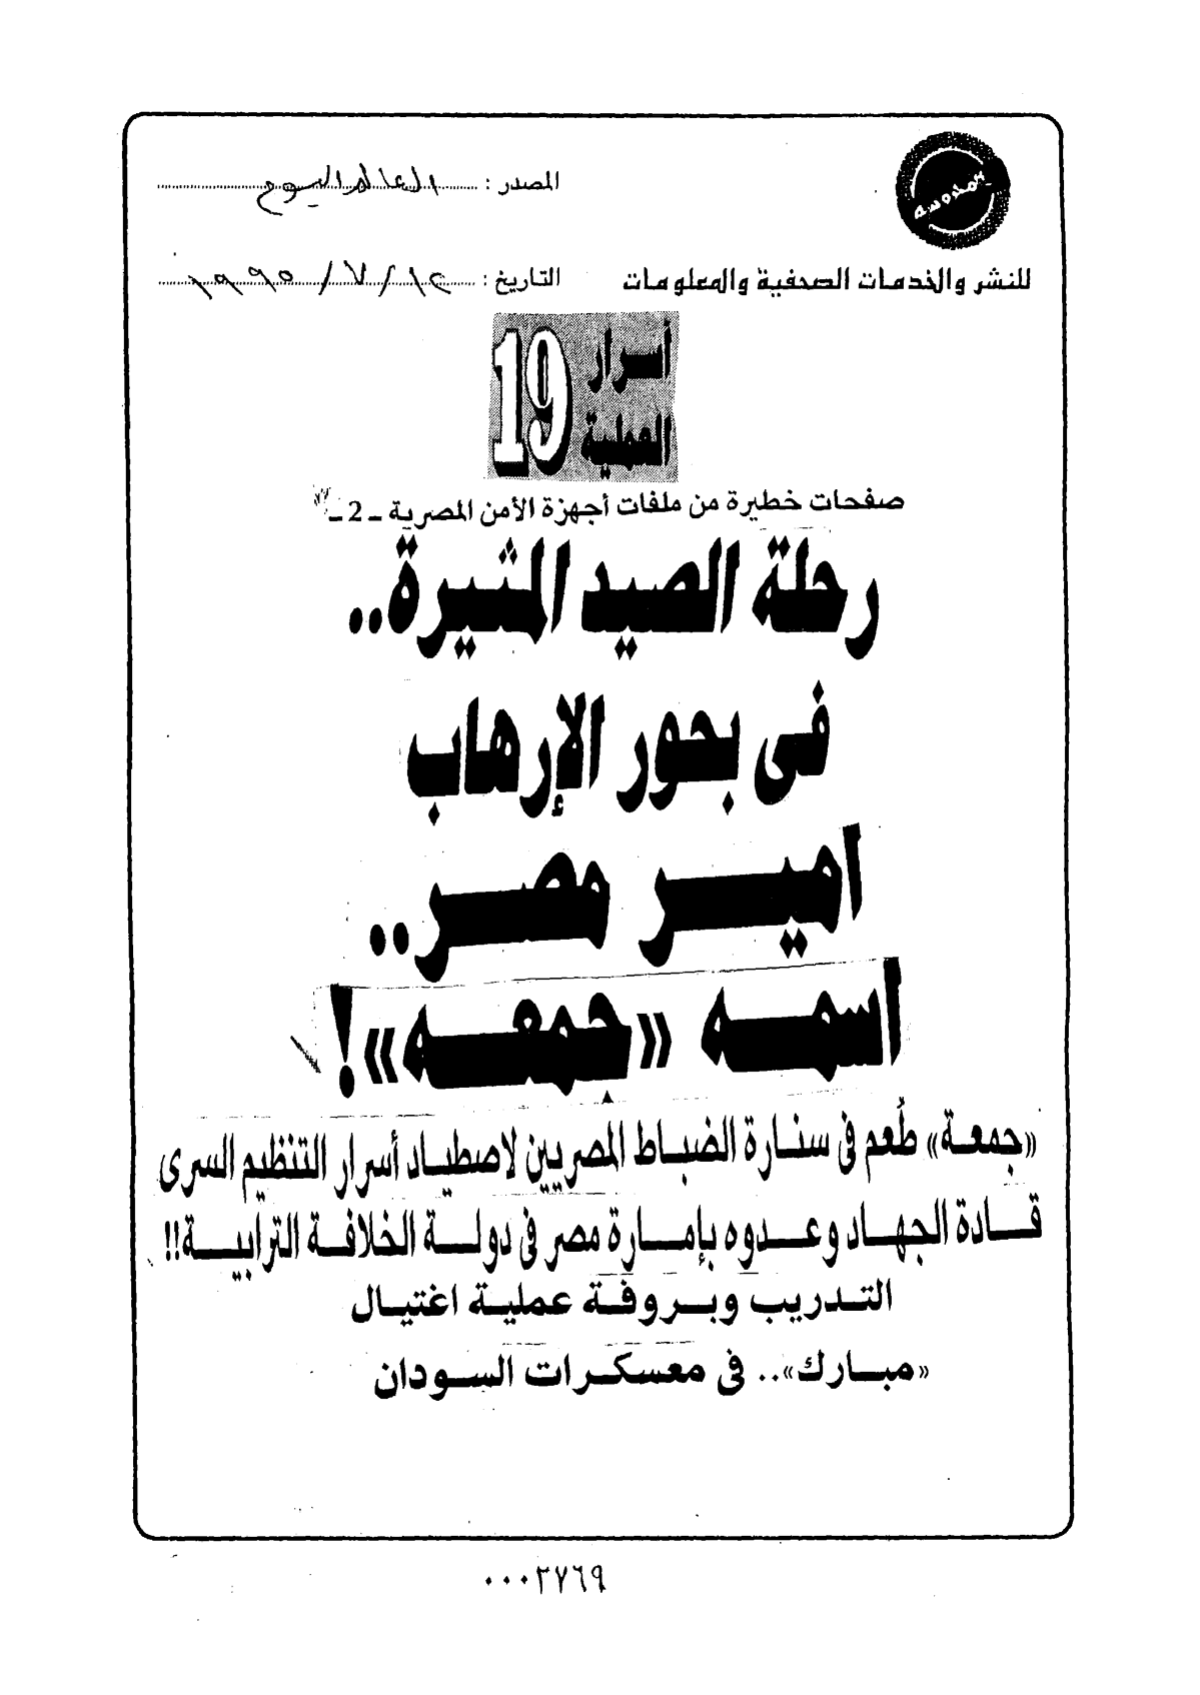 المحروسة
المصدر : العالم اليوم
للنشر والخدمات الصحفية والمعلومات
التاريخ : ١٢ / ٧ / ١٩٩٥
أسرار
العملية
19
صفحات خطيرة من ملفات أجهزة الأمن المصرية ـ 2 ـ
رحلة الصيد المثيرة..
فى بحور الإرهاب
امير مصر..
اسمه «جمعه»!
«جمعة» طُعم فى سنارة الضباط المصريين لاصطياد أسرار التنظيم السرى
قادة الجهاد وعدوه بإمارة مصر فى دولة الخلافة الترابية!!
التدريب وبروفة عملية اغتيال
«مبارك».. فى معسكرات السودان
٠٠٠٢٧٦٩